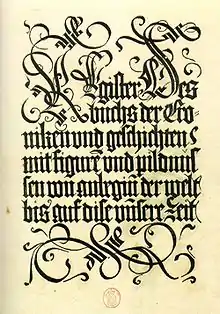 Register Des
buchs der Cro-
niken und geschichten
mit figuren und pildnus-
sen von anbeginn der welt
bis auf dise unnsere zeit